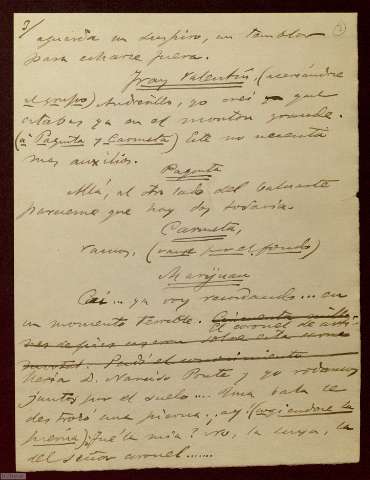 3/
aguarda un suspiro, un temblor
para echarse fuera.
Fray Valentín, (acercándose
al grupo) Andresillo, yo creí que
estabas ya en el montón grande.
(a Paquita y Carmeta) Este no necesita
mas auxilios.
Paquita
Allá, al otro lado del baluarte
pareceme que hay dos todavía.
Carmeta,
Vamos, (vanse por el fondo)
Marijuan
Cai... ya voy recordando... en
un momento terrible.
El coronel de
D. Narciso Ponte y yo rodamos
juntos por el suelo... Una bala le
destrozó una pierna.. ay! (cogiendose la
pierna) Fué la mia? No, la suya, la
del señor coronel.......